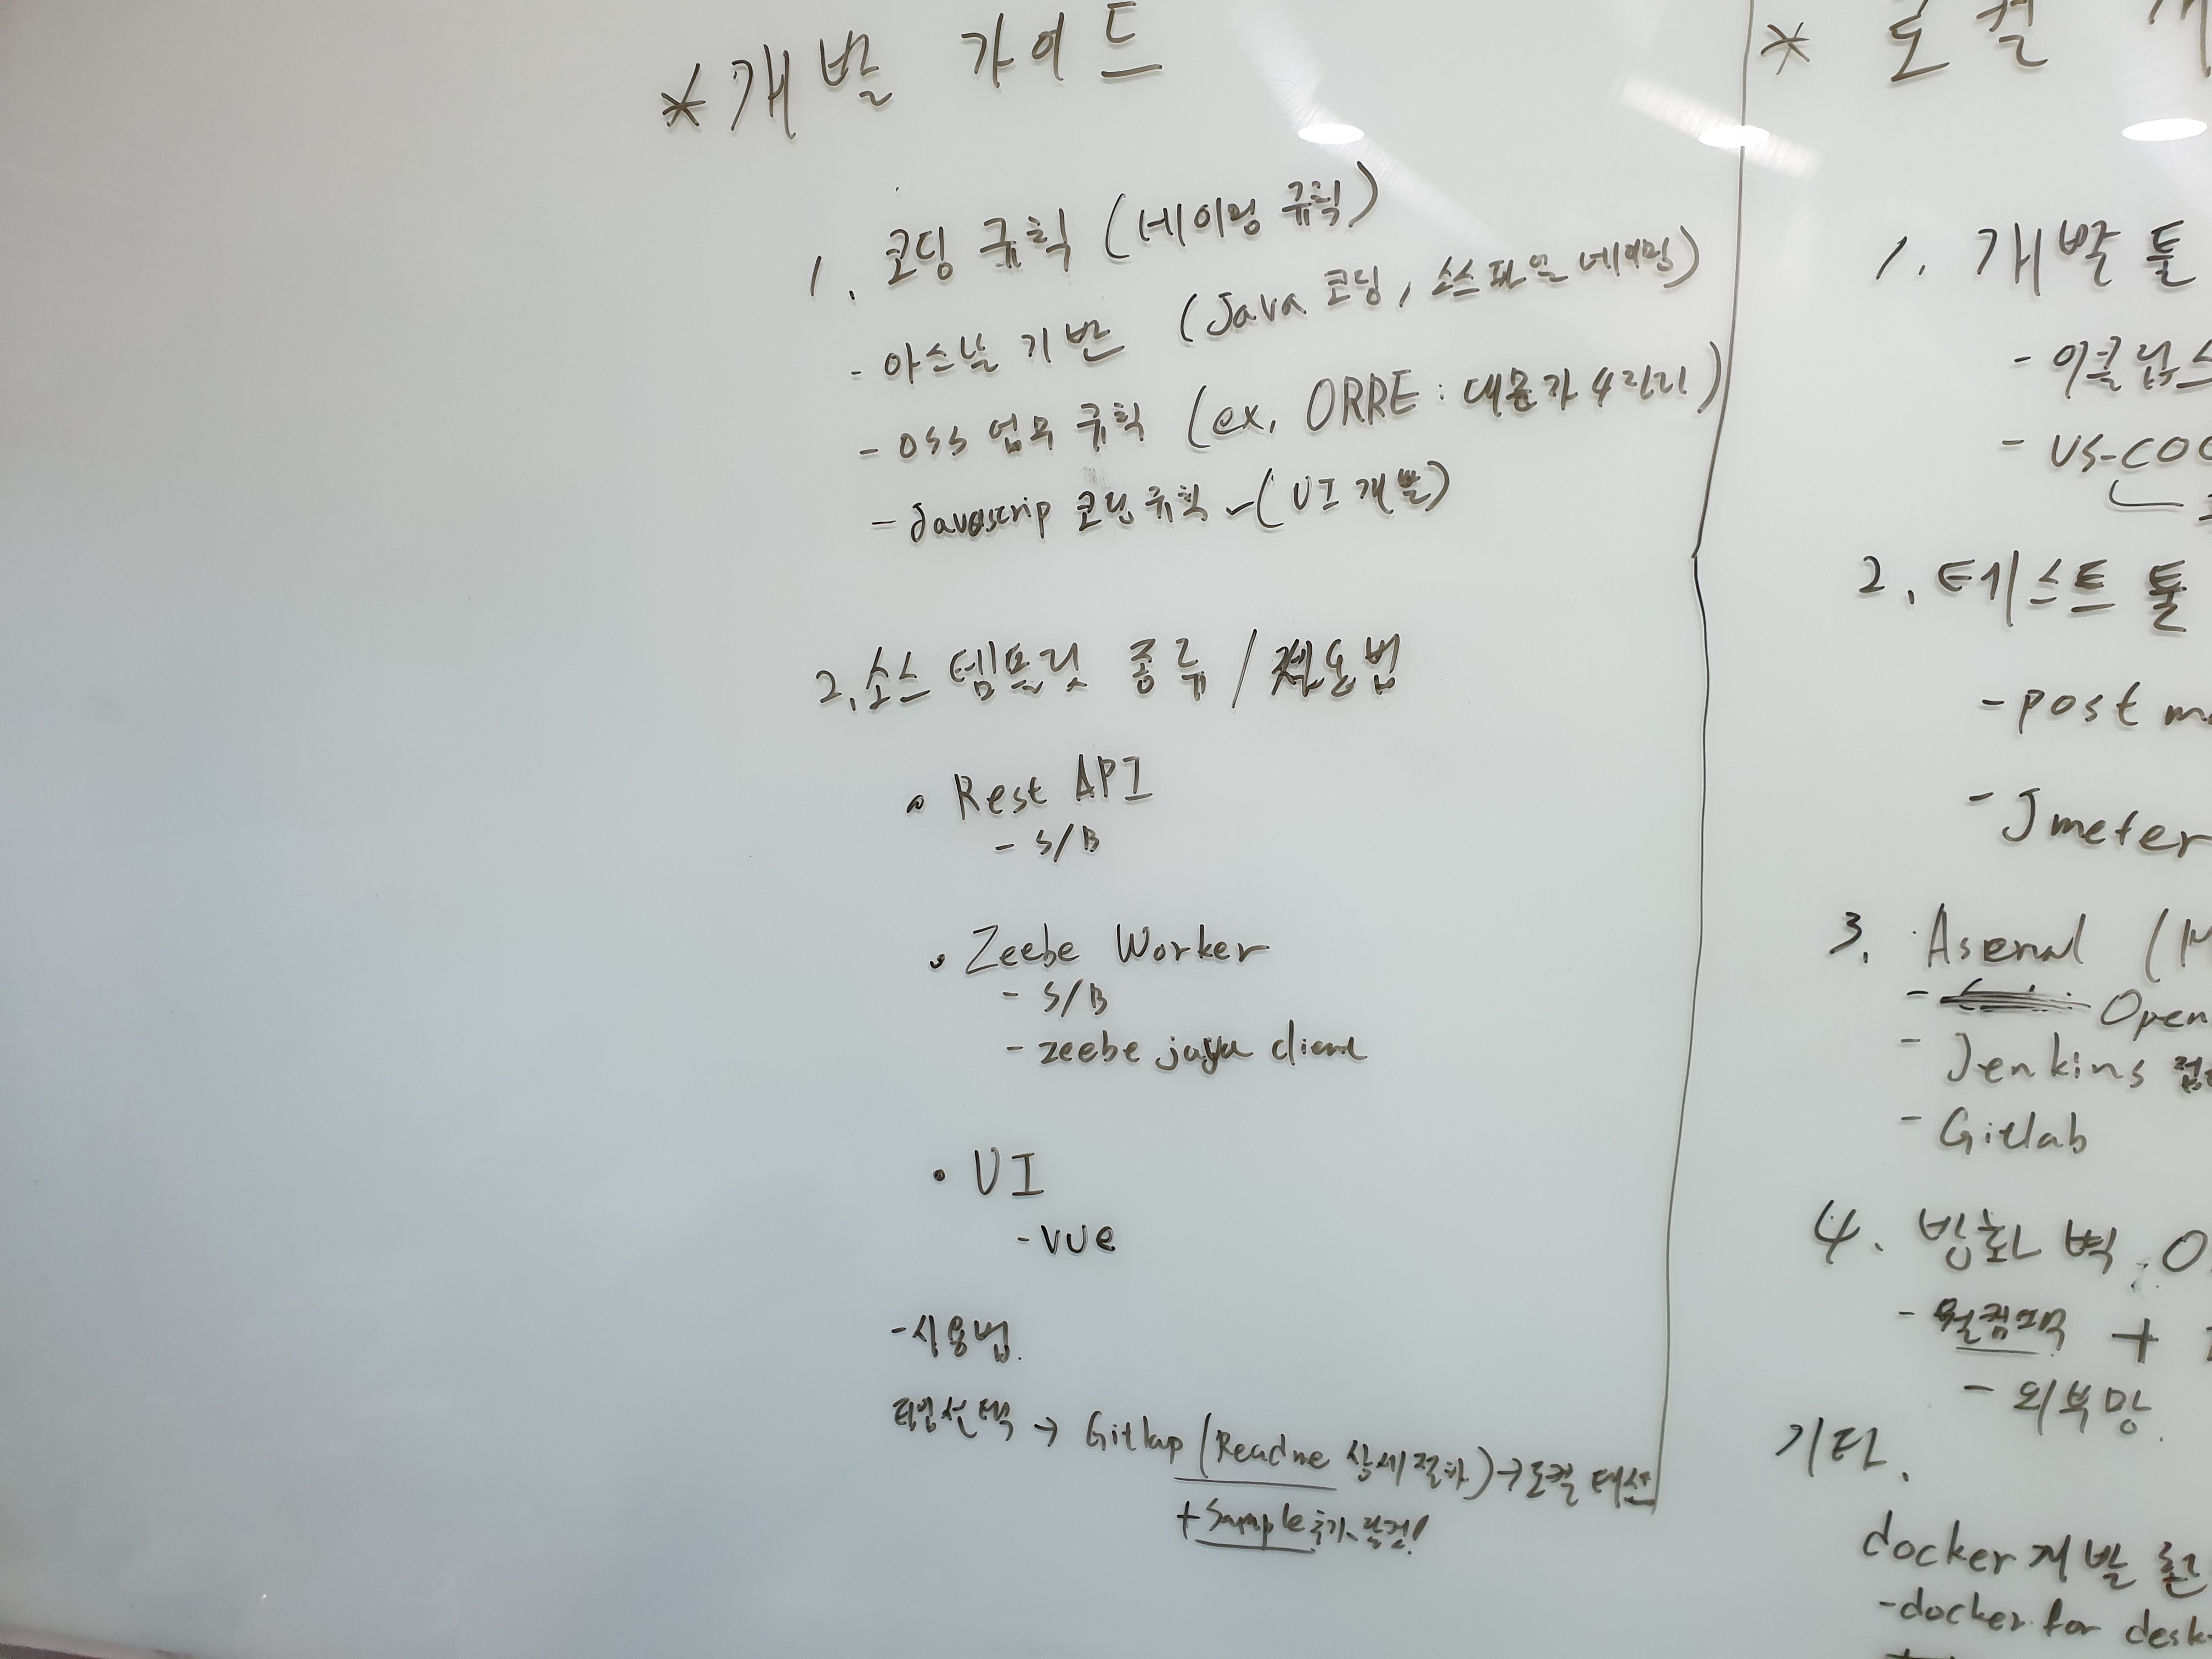 * 개발 가이드
1. 코딩 규칙 (네이밍 규칙)
- 아스날 기반 (Java 코딩, 소스파일 네이밍)
- OSS 업무 규칙 (ex, ORRE : 대문자 4자리)
- Javascrip 코딩규칙 - (UI 개발)
2. 소스 템플릿 종류 /
• Rest API
- S/B
• Zeebe Worker
- S/B
- zeebe java client
• UI
- vue
- 사용법.
타입선택 → Gitlap (Readme 상세절차) → 로컬 테스트
+ Sample 추가
* 로컬 개
1. 개발 툴
- 이클립스
- VS-COD
2. 테스트 툴
- post m
- Jmeter
3. Asenal (M
- Open
- Jenkins 접
- Gitlab
4. 방화벽
+
- 외부망
기타.
docker 개발 환
- docker for desk